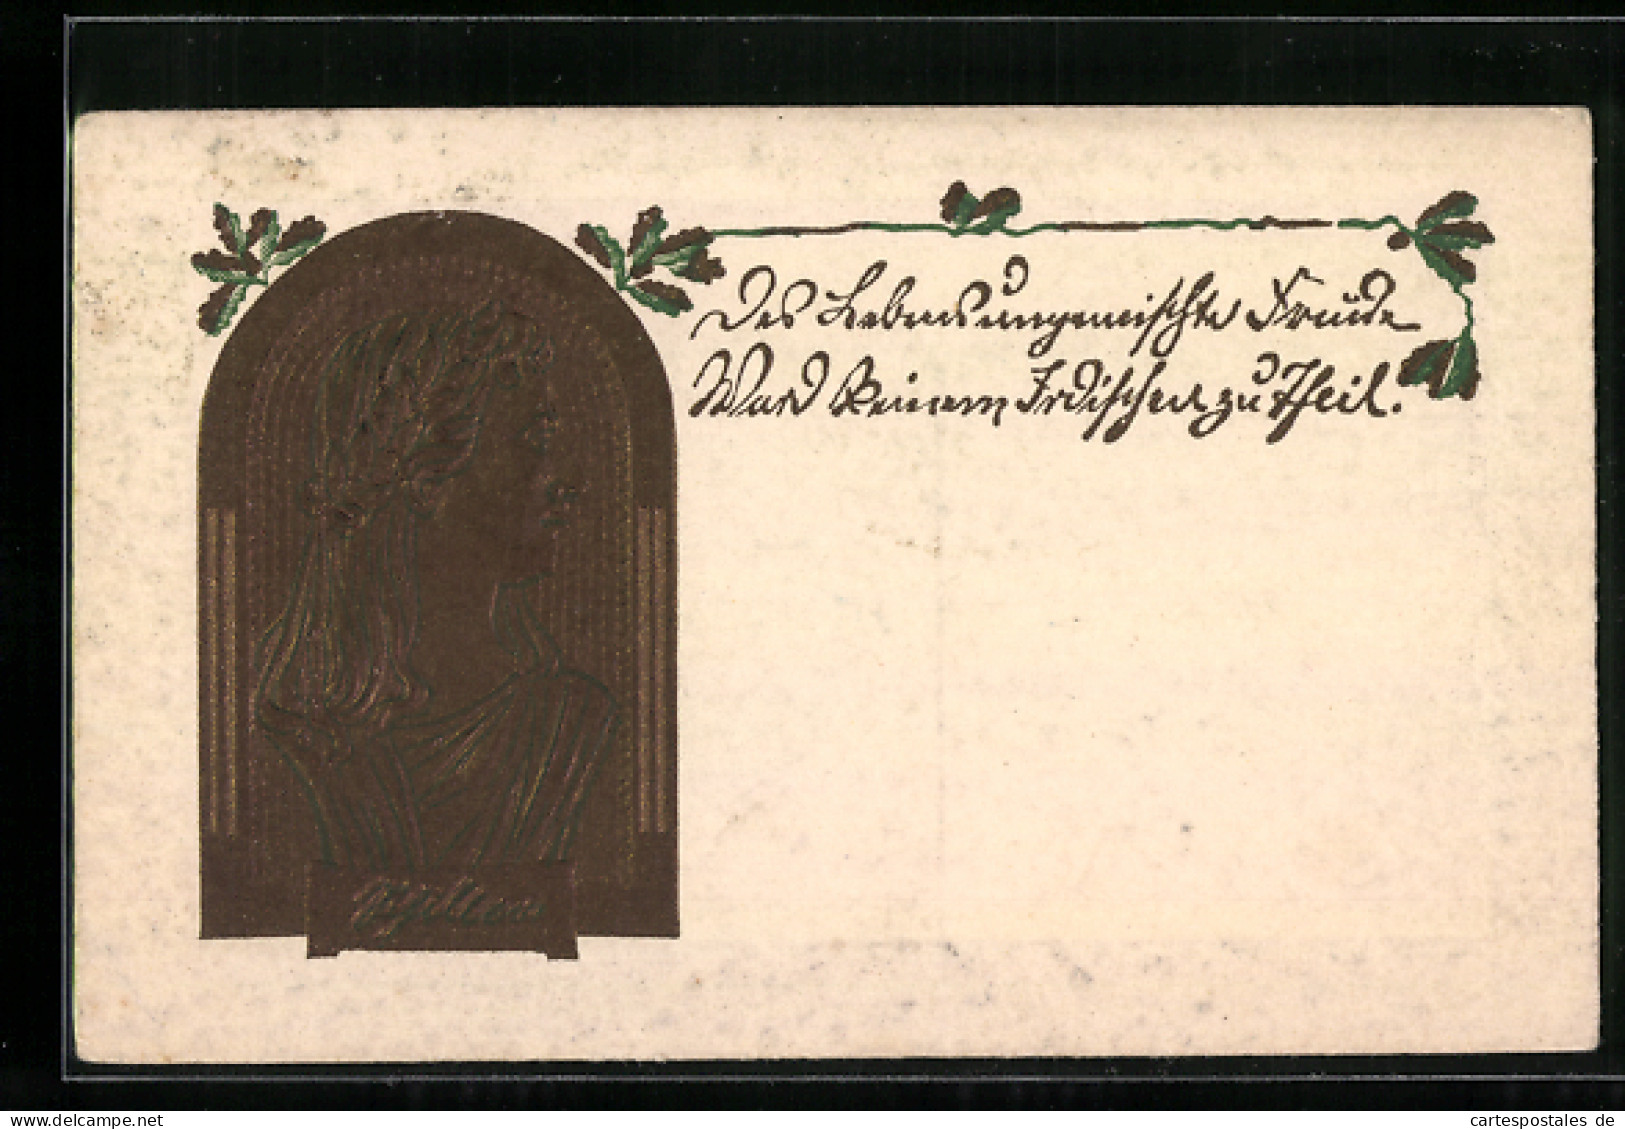 Des Lebens ungemischte Freude
Ward keinem Irdischen zu Theil.
Schiller
My collection
cartespostales de